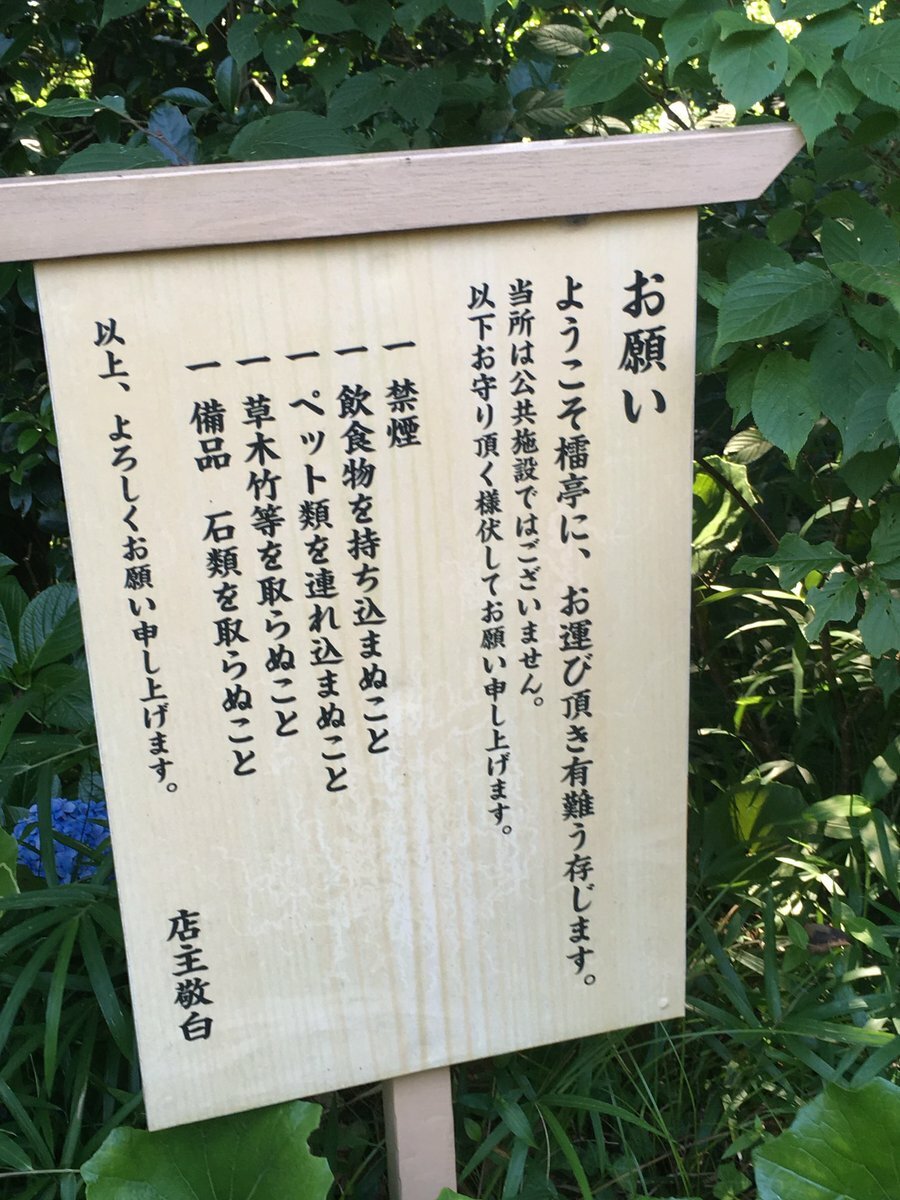 お願い
ようこそ檑亭に、お運び頂き有難う存じます。
当所は公共施設ではございません。
以下お守り頂く様伏してお願い申し上げます。
一 禁煙
一 飲食物を持ち込まぬこと
一 ペット類を連れ込まぬこと
一 草木竹等を取らぬこと
一 備品 石類を取らぬこと
以上、よろしくお願い申し上げます。
店主敬白